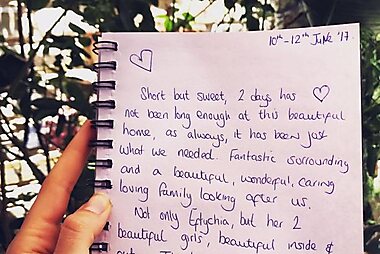 10th-12th June '17
Short but sweet, 2 days has
not been long enough at this beautiful
home, as always, it has been just
what we needed. Fantastic surrounding
and a beautiful, wonderful, caring
loving family looking after us.
Not only Eftychia, but her 2
beautiful girls, beautiful inside &